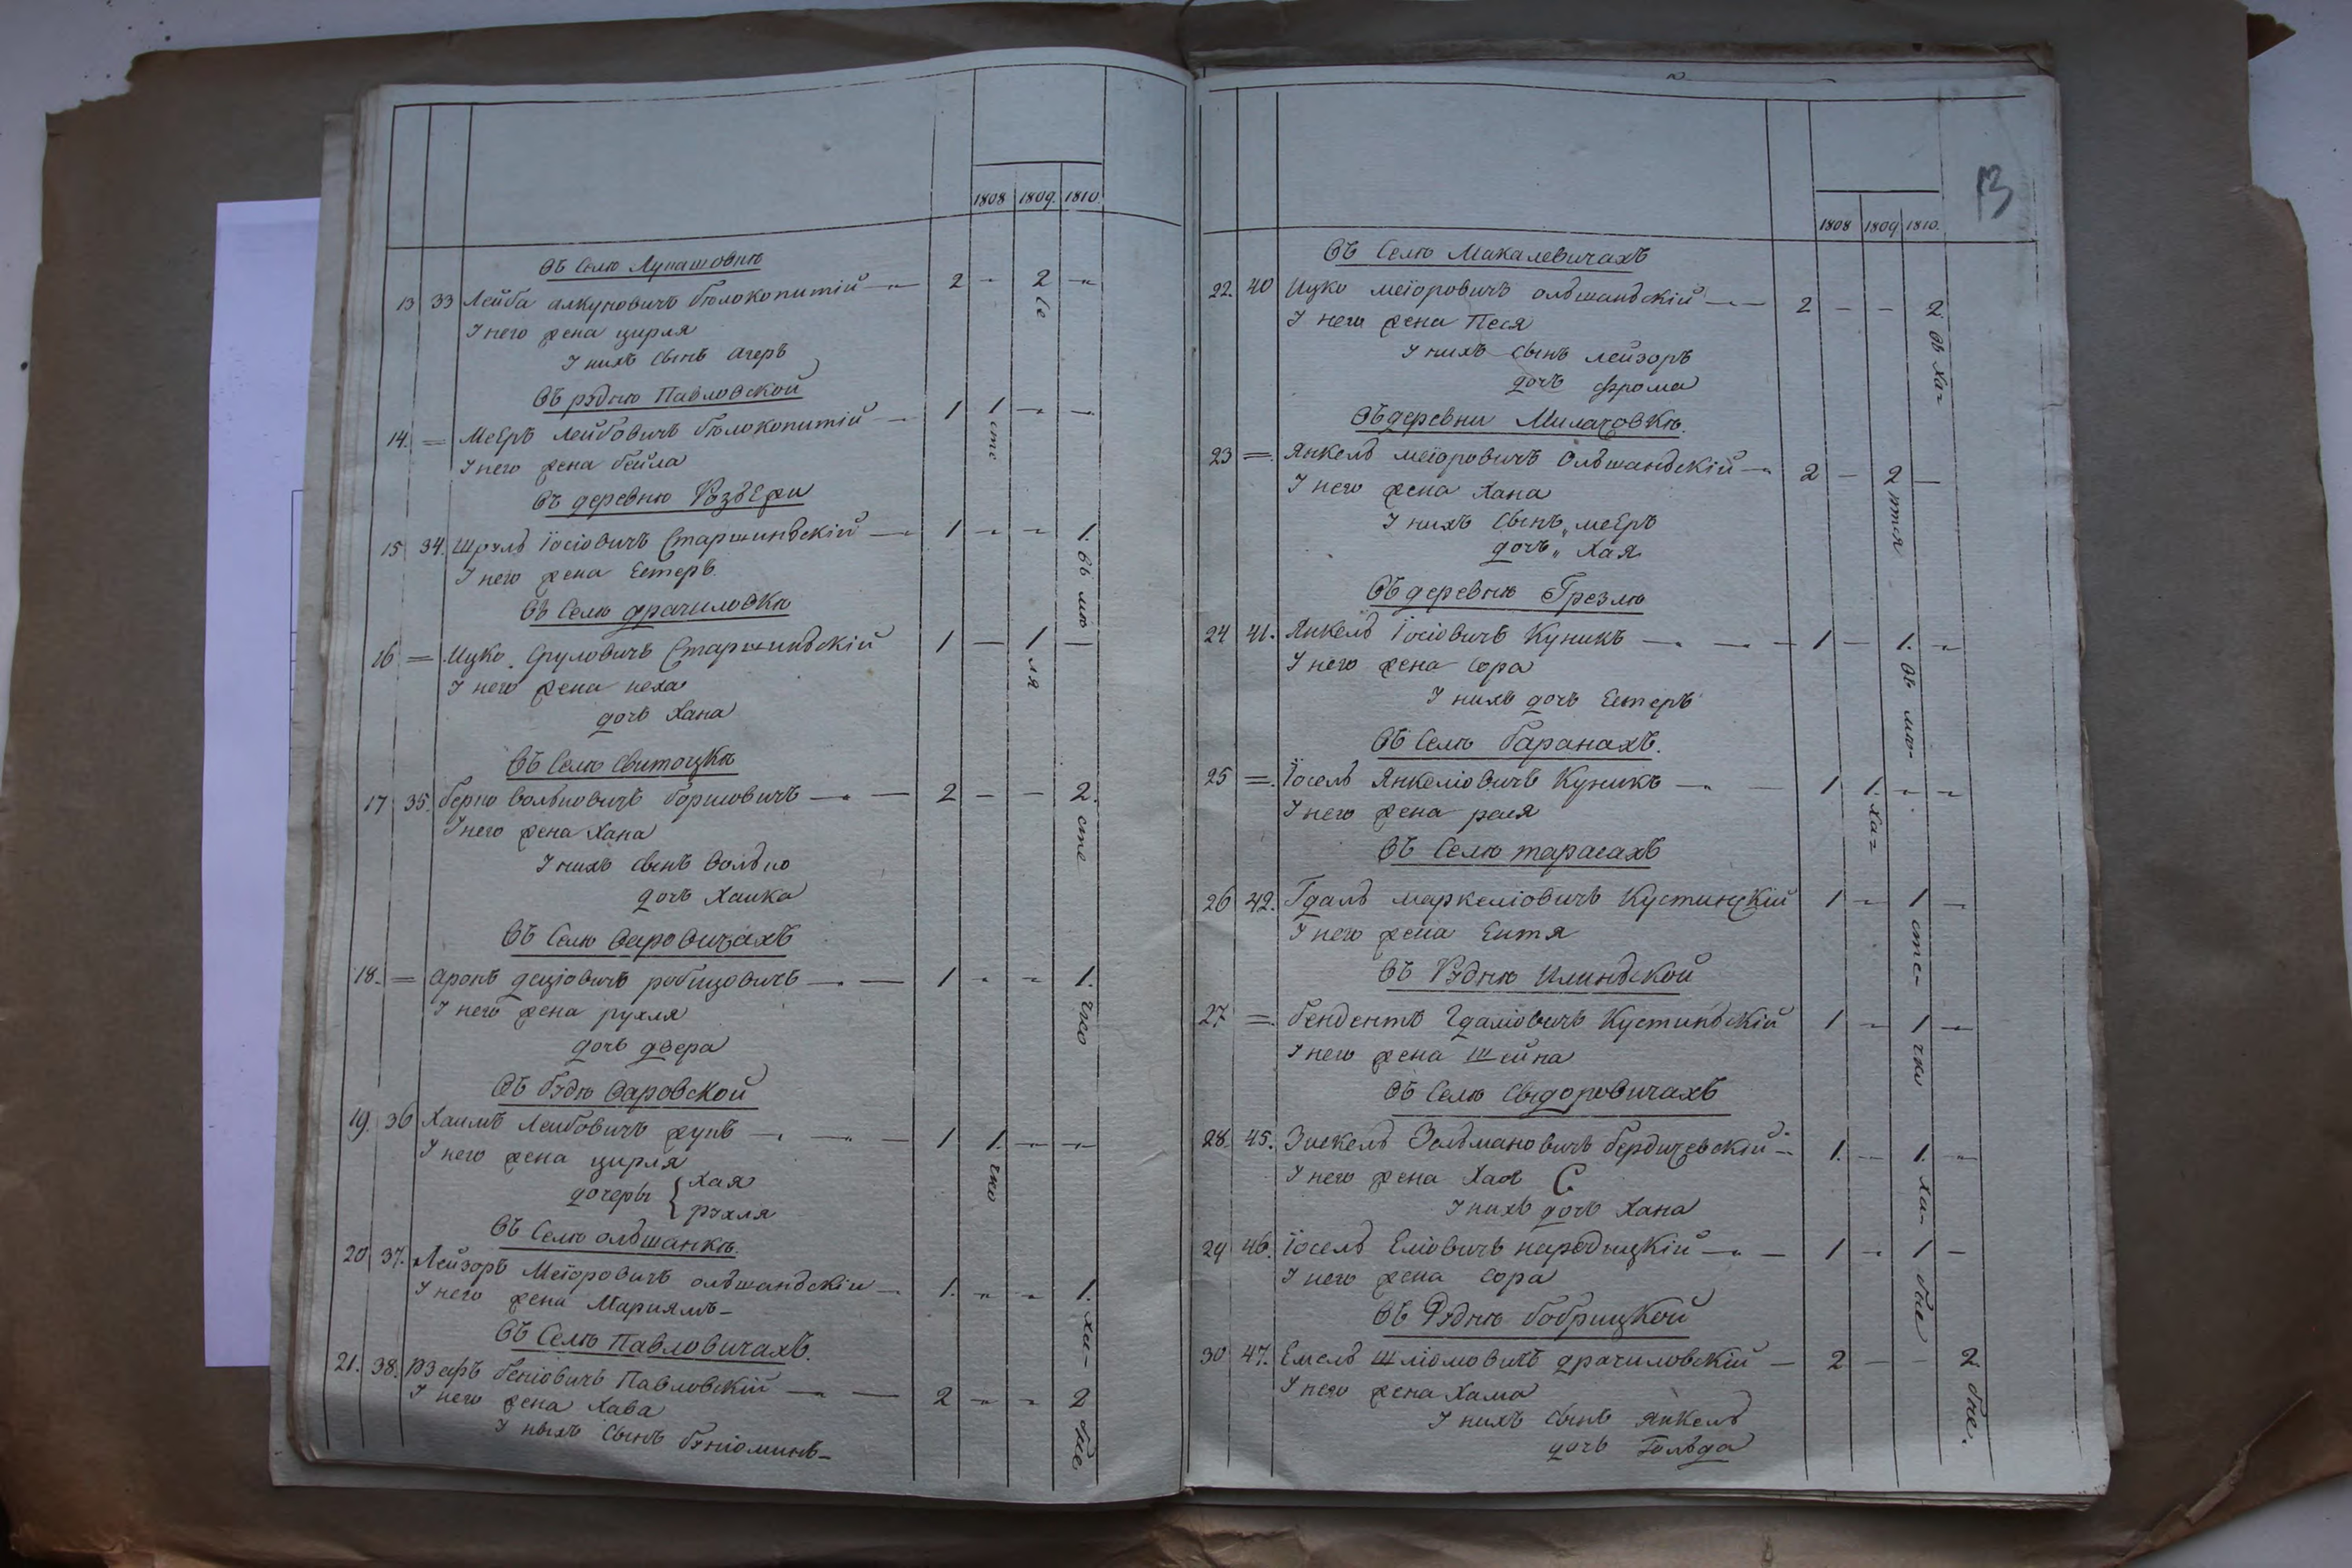 1808 1809 1810
Въ Селѣ Лупашовкѣ
13 33 Лейба алкуновичъ бѣлокопитій 2 - 2 -
У него жена цирля
У нихъ сынъ
Въ рудню Павловской
14. = Мееръ Лейбовичъ бѣлокопитій - 1 1 - -
У него жена бейла
Въ деревнѣ
15 34. Шруль Іосіовичъ Старшиньскій - 1 - - 1.
У него жена Естеръ
Въ Селѣ драчиловки
16 = Ицко Сруловичъ Старшиньскій 1 - 1 -
У него жена неха
дочь Хана
Въ Селѣ Свитоцки
17 35. берко вольковичъ боршовичъ - 2 - - 2.
У него жена Хана
У нихъ сынъ Волько
дочь Хаика
Въ Селѣ Варовичахъ
18. = аронъ робицовичъ - 1 - - 1.
У него жена рухля
дочь двера
Въ Варовской
19. 36 Хаимъ Леибовичъ - 1 1. - -
У него жена цирля
дочеръ { Хая
рухля
Въ Селѣ олшанки
20 37. Лейзоръ Меіоровичъ ольшаньскіи - 1. - - 1.
У него жена Мариямъ-
Въ Селѣ Павловичахъ.
21. 38. беніовичъ Павловскій - 2 - - 2
У него жена Хава
У ныхъ сынъ
13
1808 1809 1810.
Въ Селѣ Макалевичахъ
22. 40 Ицко меіоровичъ ольшаньскій - 2 - - 2.
У него жена Песя
У нихъ сынъ лейзоръ
дочь фрома
Въ деревни Милачовкѣ.
23 =. Янкель меіоровичъ Ольшаньскій - 2 - 2 -
У него жена Хана
У нихъ сынъ меeръ
дочь Хая
Въ деревнѣ Грезлѣ
24 41. Янкель Іосіовичъ Куникъ - 1 - 1. -
У него жена Сора
У нихъ дочь Естеръ
Въ Селѣ баранахъ.
25 =. Іосель Янкеліовичъ Куникъ - 1 1. - -
У него жена рася
Въ Селѣ тарасахъ
26 42. Гдаль маркеліовичъ Кустинскій 1 - 1 -
У него жена Ентя
Въ Рудню Илиньской
27 =. Гдаліовичъ Кустиньскій 1 - 1 -
У него жена Шейна
Въ Селѣ Сыдоровичахъ
28. 45. Зискель Зальмановичъ бердичевскій - 1. - 1. -
У него жена Хая
У нихъ дочь Хана
29 46. Іосель Еліовичъ народыцкій - 1 - 1 -
У него жена Сора
Въ Рудню бобрицкой
30 47. Емель Шліомовичъ драчиловскій - 2 - - 2.
У него жена Хама
У нихъ сынъ янкель
дочь Гольда